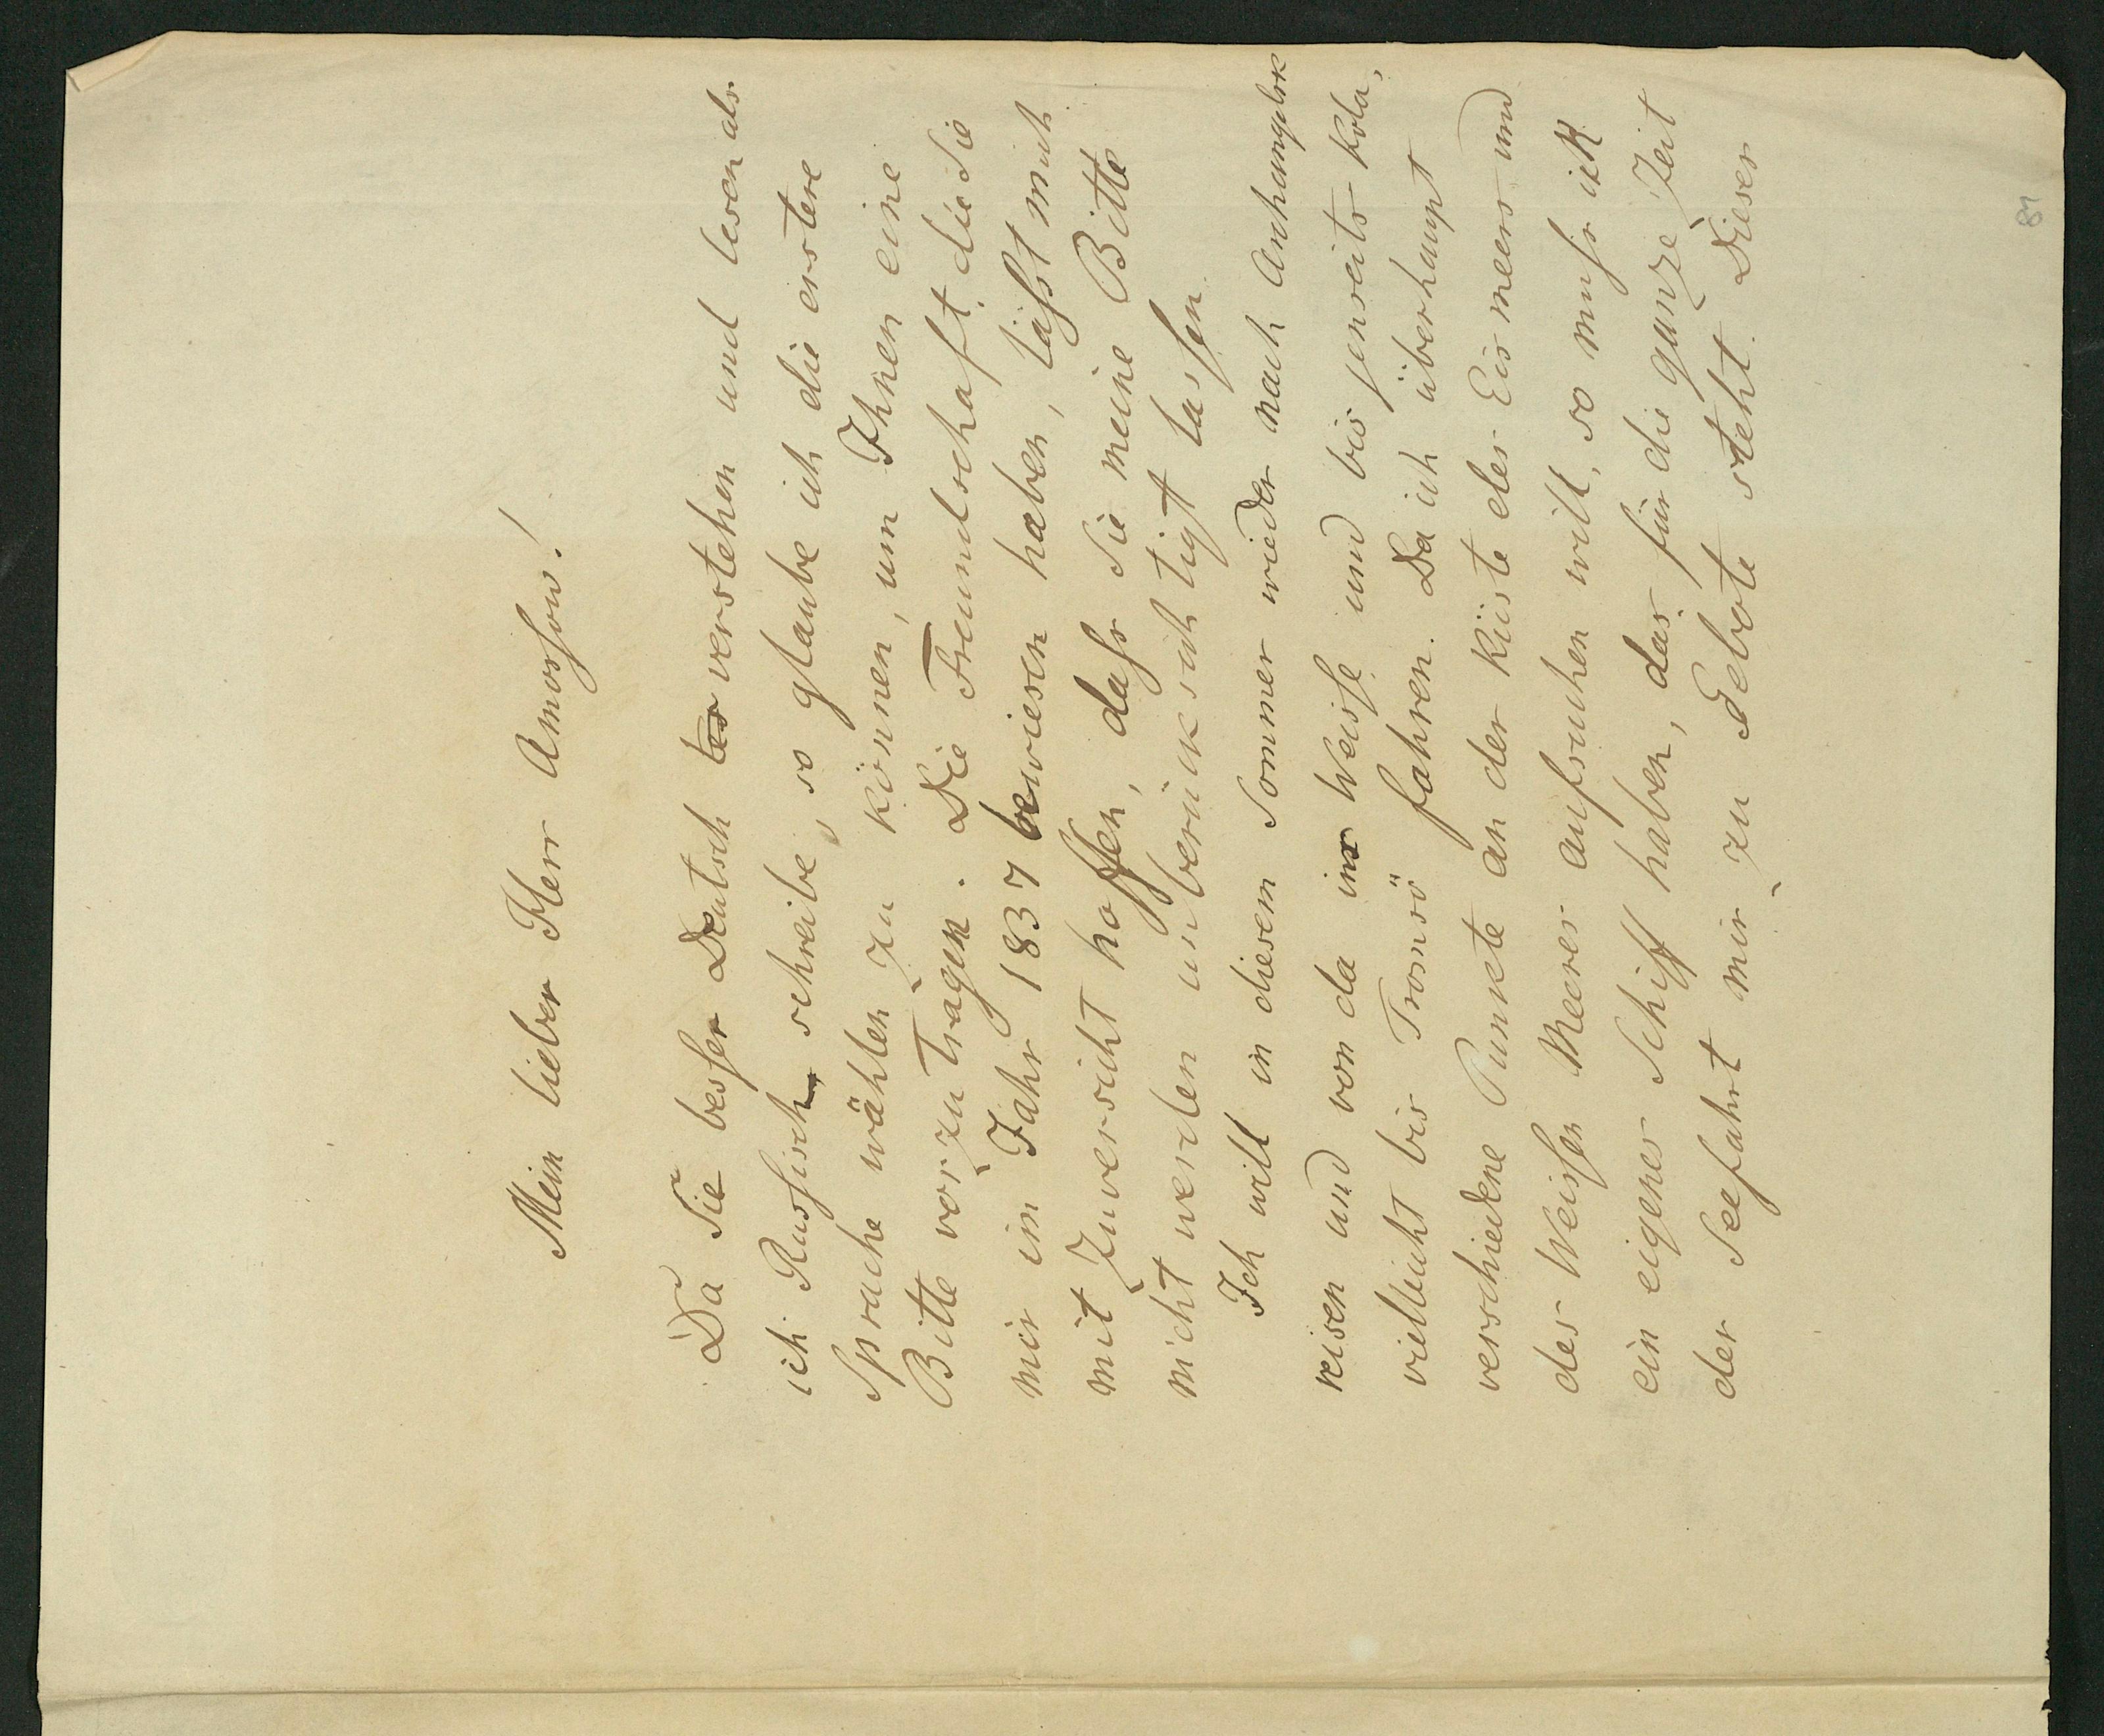 Mein lieber Herr Amossow!
Da Sie besser Deutsch les verstehen und lesen als
ich Russisch schreibe, so glaube ich die erstere
Sprache wählen zu können, um Ihnen eine
Bitte vorzutragen. Die Freundschaft, die Sie
mir im Jahr 1837 bewiesen haben, läßt mich
mit Zuversicht hoffen, daß Sie meine Bitte
nicht werden unberücksichtigt lassen.
Ich will in diesem Sommer wieder nach Archangelsk
reisen und von da ins Weisse und bis jenseits Kola,
vielleicht bis Tromsö fahren. Da ich überhaupt
verschiedene Punkte an der Küste des Eismeers und
des Weissen Meeres aufsuchen will, so muß ich
ein eigenes Schiff haben, das für die ganze Zeit
der Seefahrt mir zu Gebote steht. Dieser